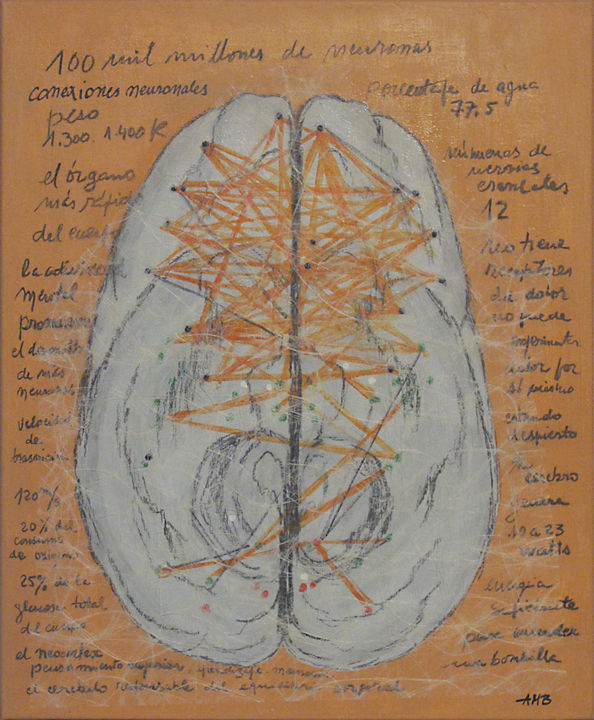 100 mil millones de neuronas
conexiones neuronales
peso
1.300. 1.400 K
el órgano
más rápido
del cuerpo
la actividad
mental
el
de más
neuronas
velocidad
de
120 m/s
20% del
consumo
de oxigeno
25% de la
glucosa total
del cuerpo
el neocortex
pensamiento superior, memoria
el cerebelo responsable del equilibrio corporal
porcentaje de agua
77,5
de
nervios
craneales
12
no tiene
receptores
de dolor
no puede
experimentar
dolor por
si mismo
estando
despierto
tu
cerebro
genera
10 a 23
watts
energia
suficiente
para encender
una bombilla
AHB